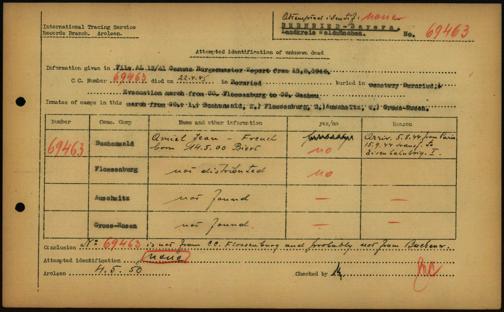 International Tracing Service
Records Branch. Arolsen.
Attempted identif.: none
BERNRIED-Bavara.
Landkreis
No. 69463
Attempted identification of unknown dead
Information given in File AL 12/41 Gemunz Burgermaster Report from 15,8,1946,
C.C. Number 69463 died on 22.4.45 in Bernried buried in cemetery Bernried,
Evacuation march from CC. Flossenburg to CC. Dachau
Inmates of camps in this march from CC. 1.) Buchenwald, 2.) Flossenburg, 3.) Auschwitz, 4.) Gross-Rosen
Number Conc. Camp Name and other information yes/no Reason
69463 Buchenwald Jean - French born 14.5.00 no Arriv. 5.8.44 from Paris
15.9.44 transf. to
Flossenburg not distributed no
Auschwitz not found — —
Gross-Rosen not found. — —
Conclusion No 69463 is not from CC. Flossenburg and probably not from Buchenw.
Attempted identification none
Arolsen 4.5.50 Checked by